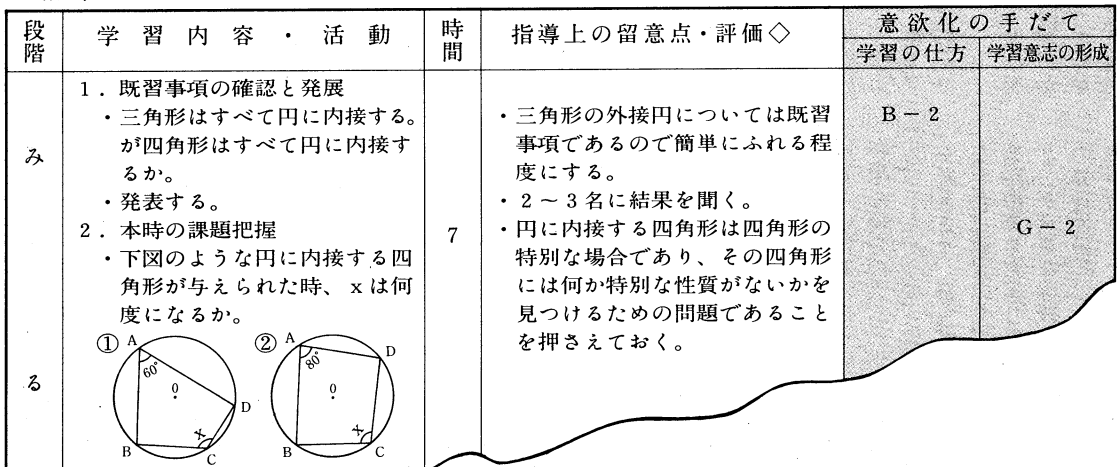 段階
学習内容・活動
時間
指導上の留意点・評価◇
意欲化の手だて
学習の仕方
学習意志の形成
みる
1．既習事項の確認と発展
・三角形はすべて円に内接する。
が四角形はすべて円に内接す
るか。
・発表する。
2．本時の課題把握
・下図のような円に内接する四
角形が与えられた時、xは何
度になるか。
① A 60° 0 D B x C
② A 80° D 0 B x C
7
・三角形の外接円については既習
事項であるので簡単にふれる程
度にする。
・2～3名に結果を聞く。
・円に内接する四角形は四角形の
特別な場合であり、その四角形
には何か特別な性質がないかを
見つけるための問題であること
を押さえておく。
B－2
G－2